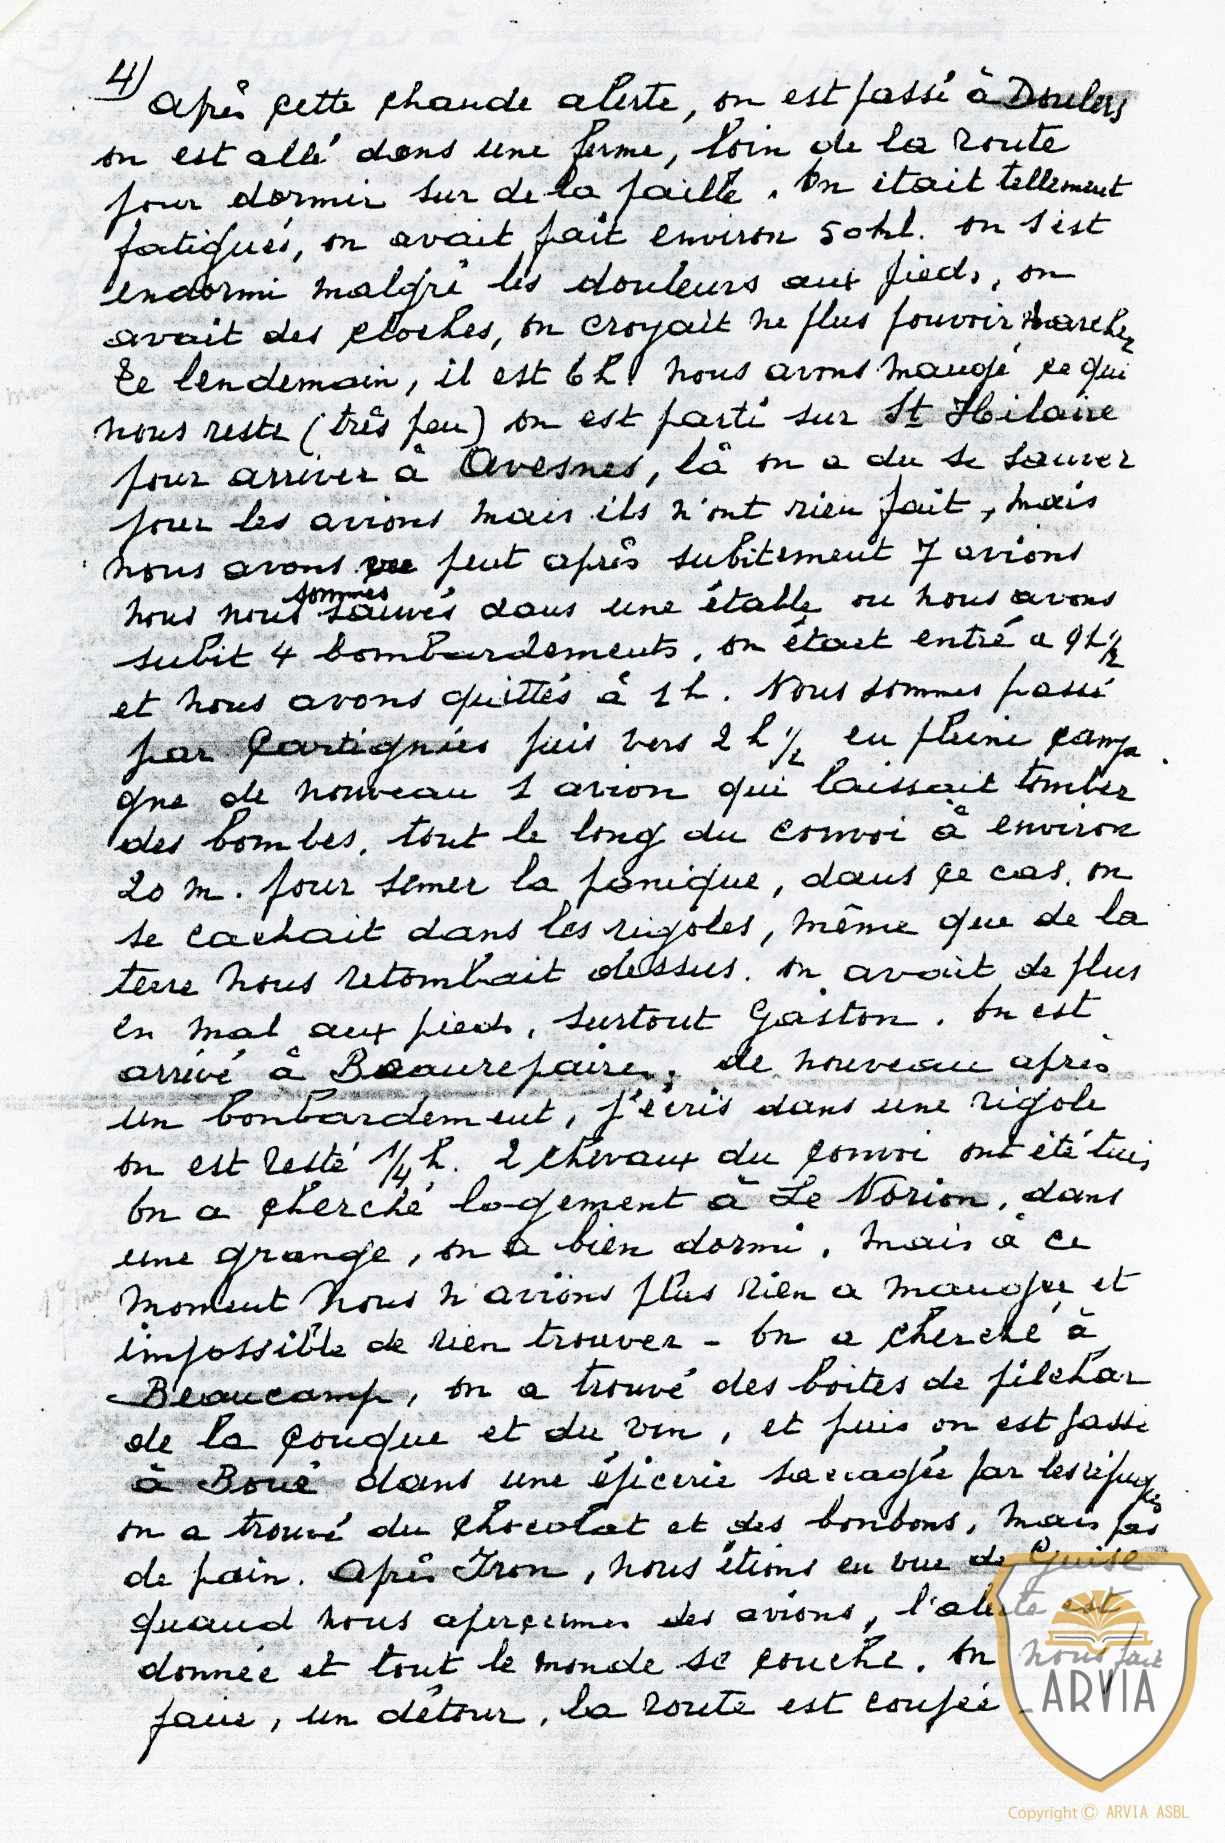 4)
Après cette chaude alerte, on est passé à Doulers
on est allé dans une ferme, loin de la route
pour dormir sur de la paille. On était tellement
fatigués, on avait fait environ 50kl. on s'est
endormi malgré les douleurs aux pieds, on
avait des cloches, on croyait ne plus pouvoir marcher
Le lendemain, il est 6h. nous avons mangé ce qui
nous reste (très peu) on est parti sur St Hilaire
pour arriver à Avesnes, là on a du se sauver
pour les avions mais ils n'ont rien fait, mais
nous avons peut après subitement 7 avions
nous nous sommes sauvés dans une étable ou nous avons
subit 4 bombardements, on était entré a 9h 1/2
et nous avons quittés à 1h. Nous sommes passé
par Cartignies puis vers 2 h 1/2 en pleine campa
gne de nouveau 1 avion qui laissait tomber
des bombes, tout le long du convoi à environ
20 m. pour semer la panique, dans ce cas, on
se cachait dans les rigoles, même que de la
terre nous retombait dessus. on avait de plus
en mal aux pieds, surtout Gaston. On est
arrivé à Beaurepaire, de nouveau après
un bonbardement, j'écris dans une rigole
on est resté 1/4 h. 2 chevaux du convoi ont été tués
On a cherché logement à Le Novion, dans
une grange, on a bien dormi. Mais à ce
moment nous n'avions plus rien a manger et
impossible de rien trouver - On a cherché à
Beaucamp, on a trouvé des boites de pilchar
de la couque et du vin, et puis on est passé
à Boué dans une épicerie saccagée par les réfugiés
on a trouvé du chocolat et des bonbons, mais pas
de pain. Après Iron, nous étions en vue de Guise
quand nous aperçumes des avions, l'alerte est
donnée et tout le monde se couche. On nous fait
faire, un détour, la route est coupée -
ARVIA
Copyright © ARVIA ASBL